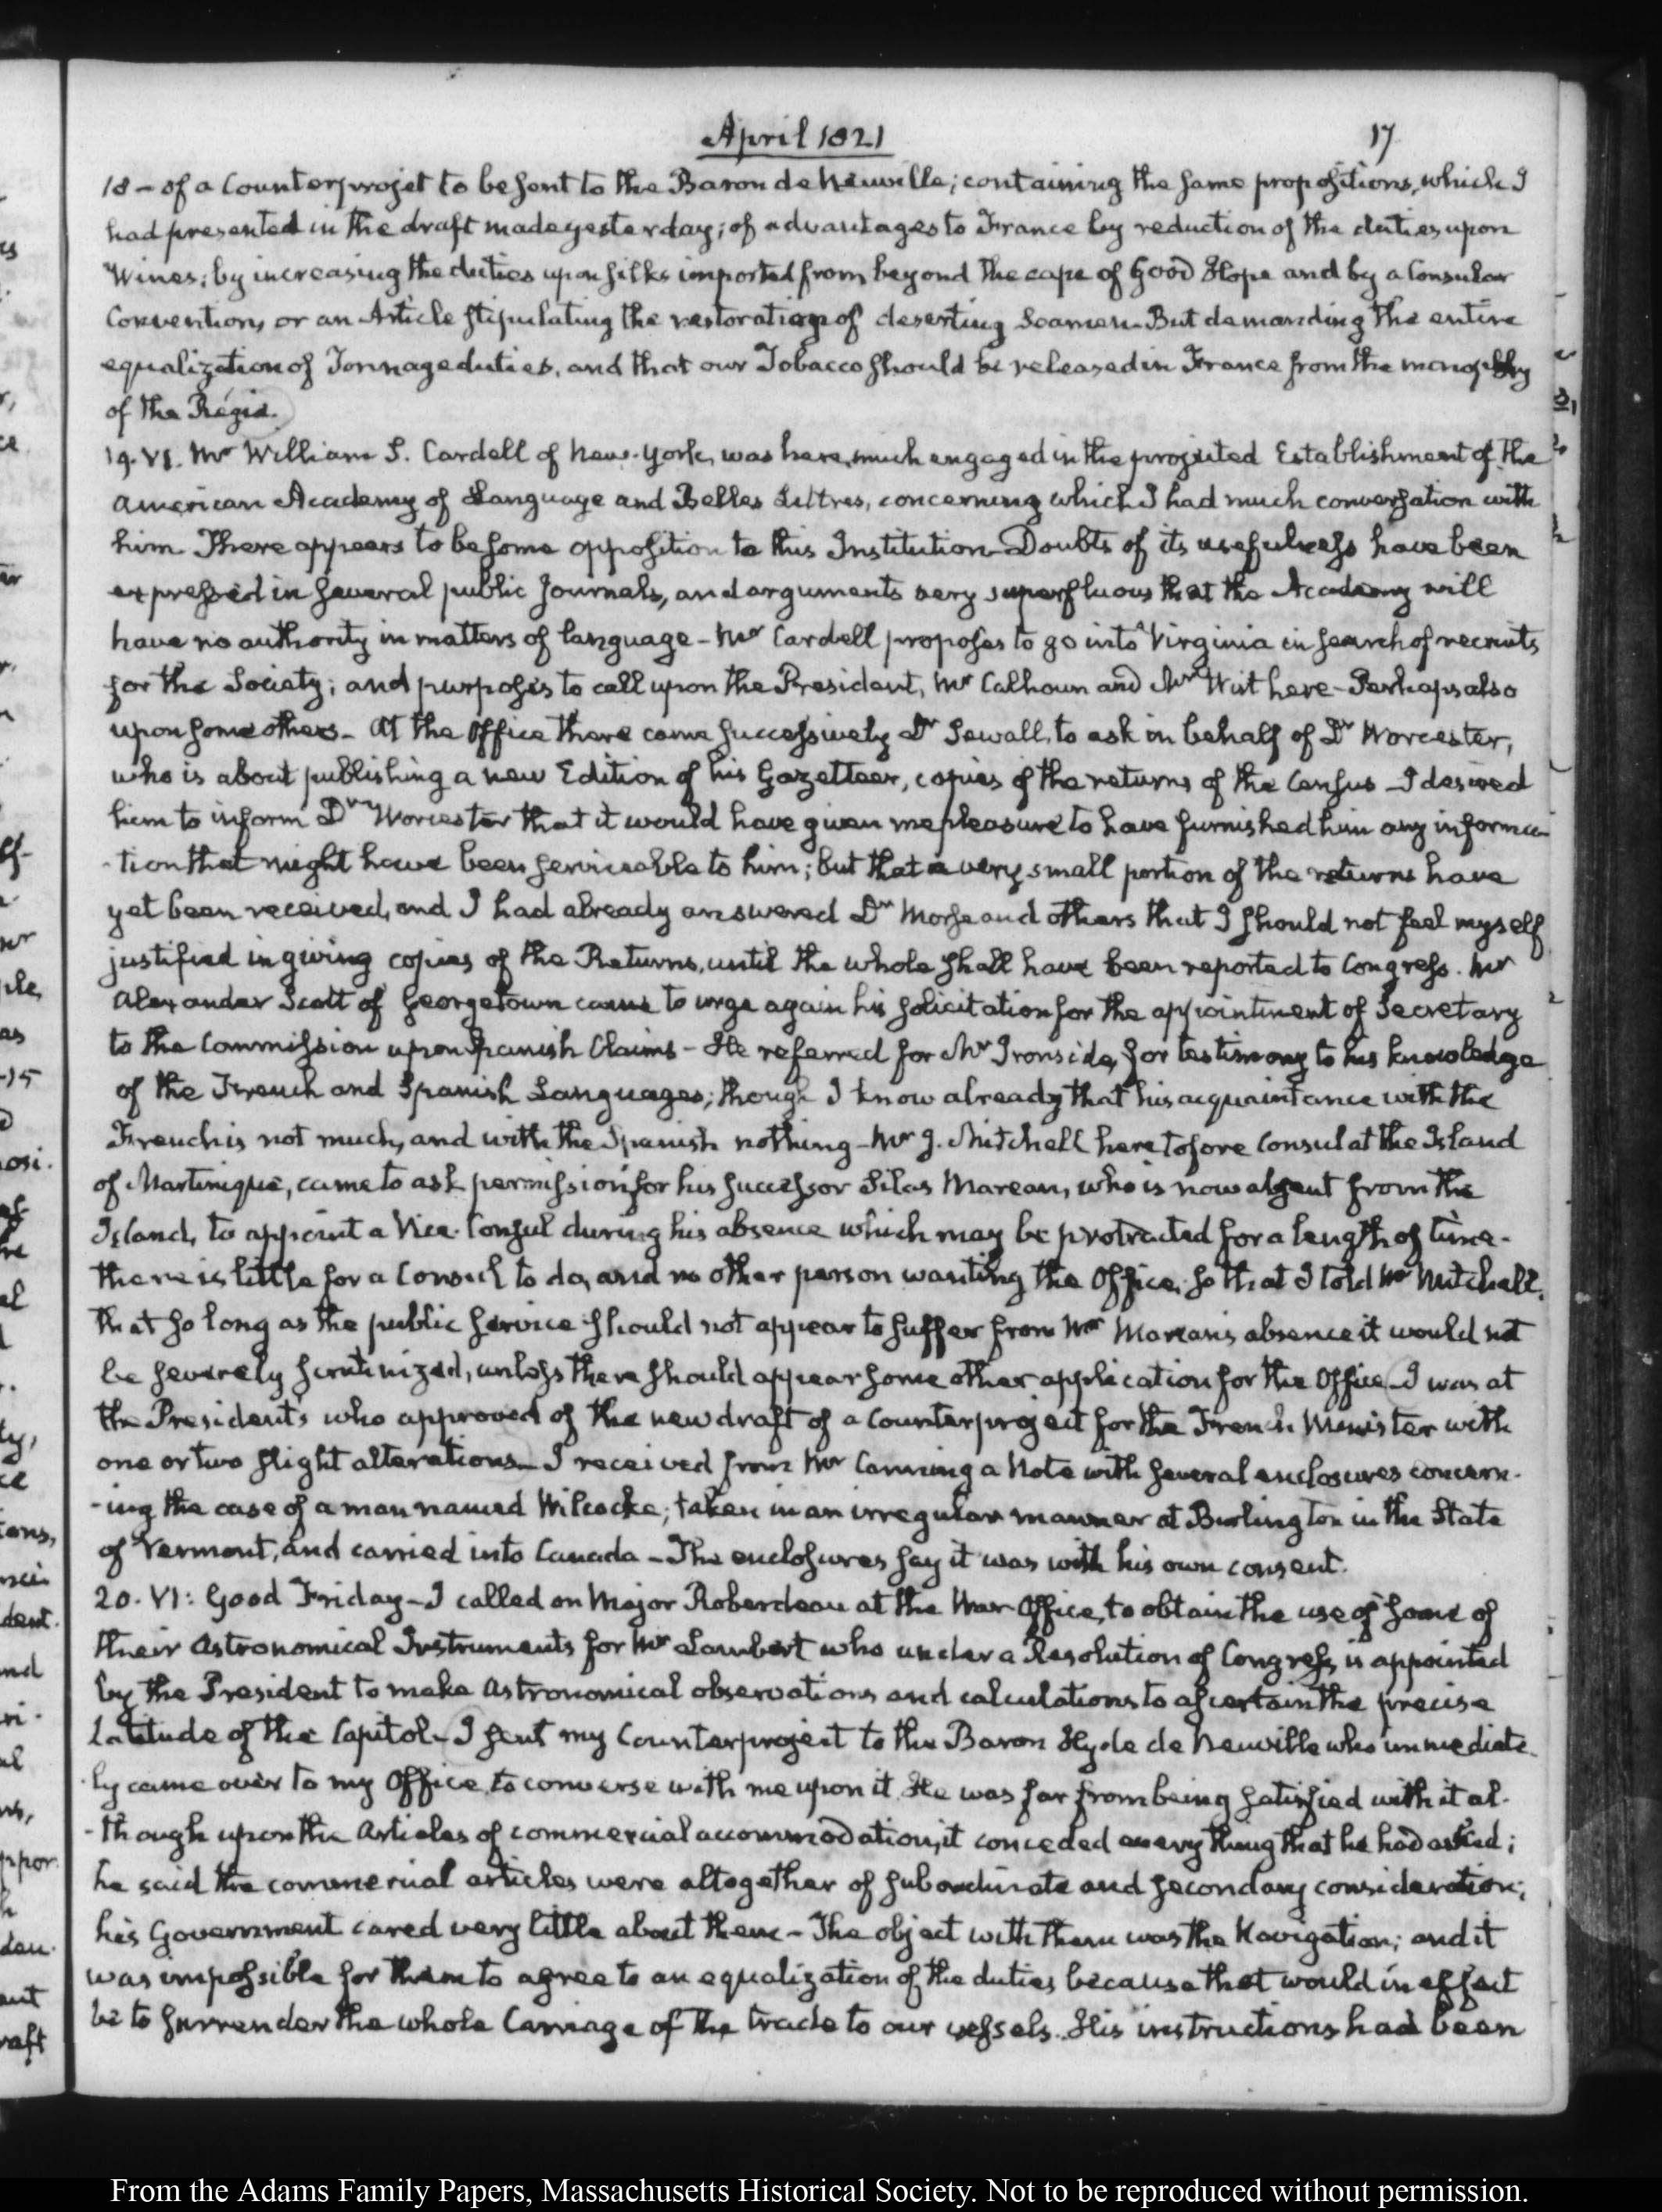 April 1821
17
18 – of a Counterprojet to be sent to the Baron de Neuville; containing the same propositions, which I
had presented in the draft made yesterday; of advantages to France by reduction of the duties upon
Wines; by increasing the duties upon silks imported from beyond the cape of Good Hope and by a Consular
Convention, or an Article stipulating the restoration of deserting Seamen. But demanding the entire
equalization of Tonnage duties, and that our Tobacco should be released in France from the monopoly
of the Régie.
19. VI. Mr William S. Cardell of New-York, was here, much engaged in the projected Establishment of the
American Academy of Language and Belles Lettres, concerning which I had much conversation with
him. There appears to be some opposition to this Institution – Doubts of its usefulness have been
expressed in several public Journals, and arguments very superfluous that the Academy will
have no authority in matters of language – Mr Cardell proposes to go into Virginia in search of recruits
for the Society; and purposes to call upon the President, Mr Calhoun and Mr Wirt here – Perhaps also
upon some others – At the Office there came successively Dr Sewall, to ask in behalf of Dr Worcester,
who is about publishing a new Edition of his Gazetteer, copies of the returns of the Census – I desired
him to inform Dr Worcester that it would have given me pleasure to have furnished him any informa-
-tion that might have been serviceable to him; but that a very small portion of the returns have
yet been received, and I had already answered Dr Morse and others that I should not feel myself
justified in giving copies of the Returns, until the whole shall have been reported to Congress. Mr
Alexander Scott of Georgetown came to urge again his solicitation for the appointment of Secretary
to the Commission upon Spanish Claims – He referred for Mr Ironside, for testimony to his knowledge
of the French and Spanish Languages; though I know already that his acquaintance with the
French is not much, and with the Spanish nothing – Mr J. Mitchell heretofore Consul at the Island
of Martinique, came to ask permission for his successor Silas Marean, who is now absent from the
Island, to appoint a Vice-Consul during his absence which may be protracted for a length of time.
there is little for a Consul to do, and no other person wanting the Office; so that I told Mr Mitchell,
that so long as the public service should not appear to suffer from Mr Marean's absence it would not
be severely scrutinized, unless there should appear some other application for the Office – I was at
the President's who approved of the new draft of a Counterproject for the French Minister with
one or two slight alterations – I received from Mr Canning a Note with several enclosures concern-
-ing the case of a man named Wilcocke; taken in an irregular manner at Burlington in the State
of Vermont, and carried into Canada – The enclosures say it was with his own consent.
20. VI: Good Friday – I called on Major Roberdeau at the War Office, to obtain the use of some of
their Astronomical Instruments for Mr Lambert who under a Resolution of Congress, is appointed
by the President to make astronomical observations and calculations to ascertain the precise
Latitude of the Capitol – I sent my Counterproject to the Baron Hyde de Neuville who immediate-
-ly came over to my Office, to converse with me upon it. He was far from being satisfied with it al-
-though upon the Articles of commercial accommodation, it conceded every thing that he had asked;
he said the commercial articles were altogether of subordinate and secondary consideration;
his Government cared very little about them – The object with them was the Navigation; and it
was impossible for them to agree to an equalization of the duties because that would in effect
be to surrender the whole Carriage of the trade to our vessels. His instructions had been
From the Adams Family Papers, Massachusetts Historical Society. Not to be reproduced without permission.